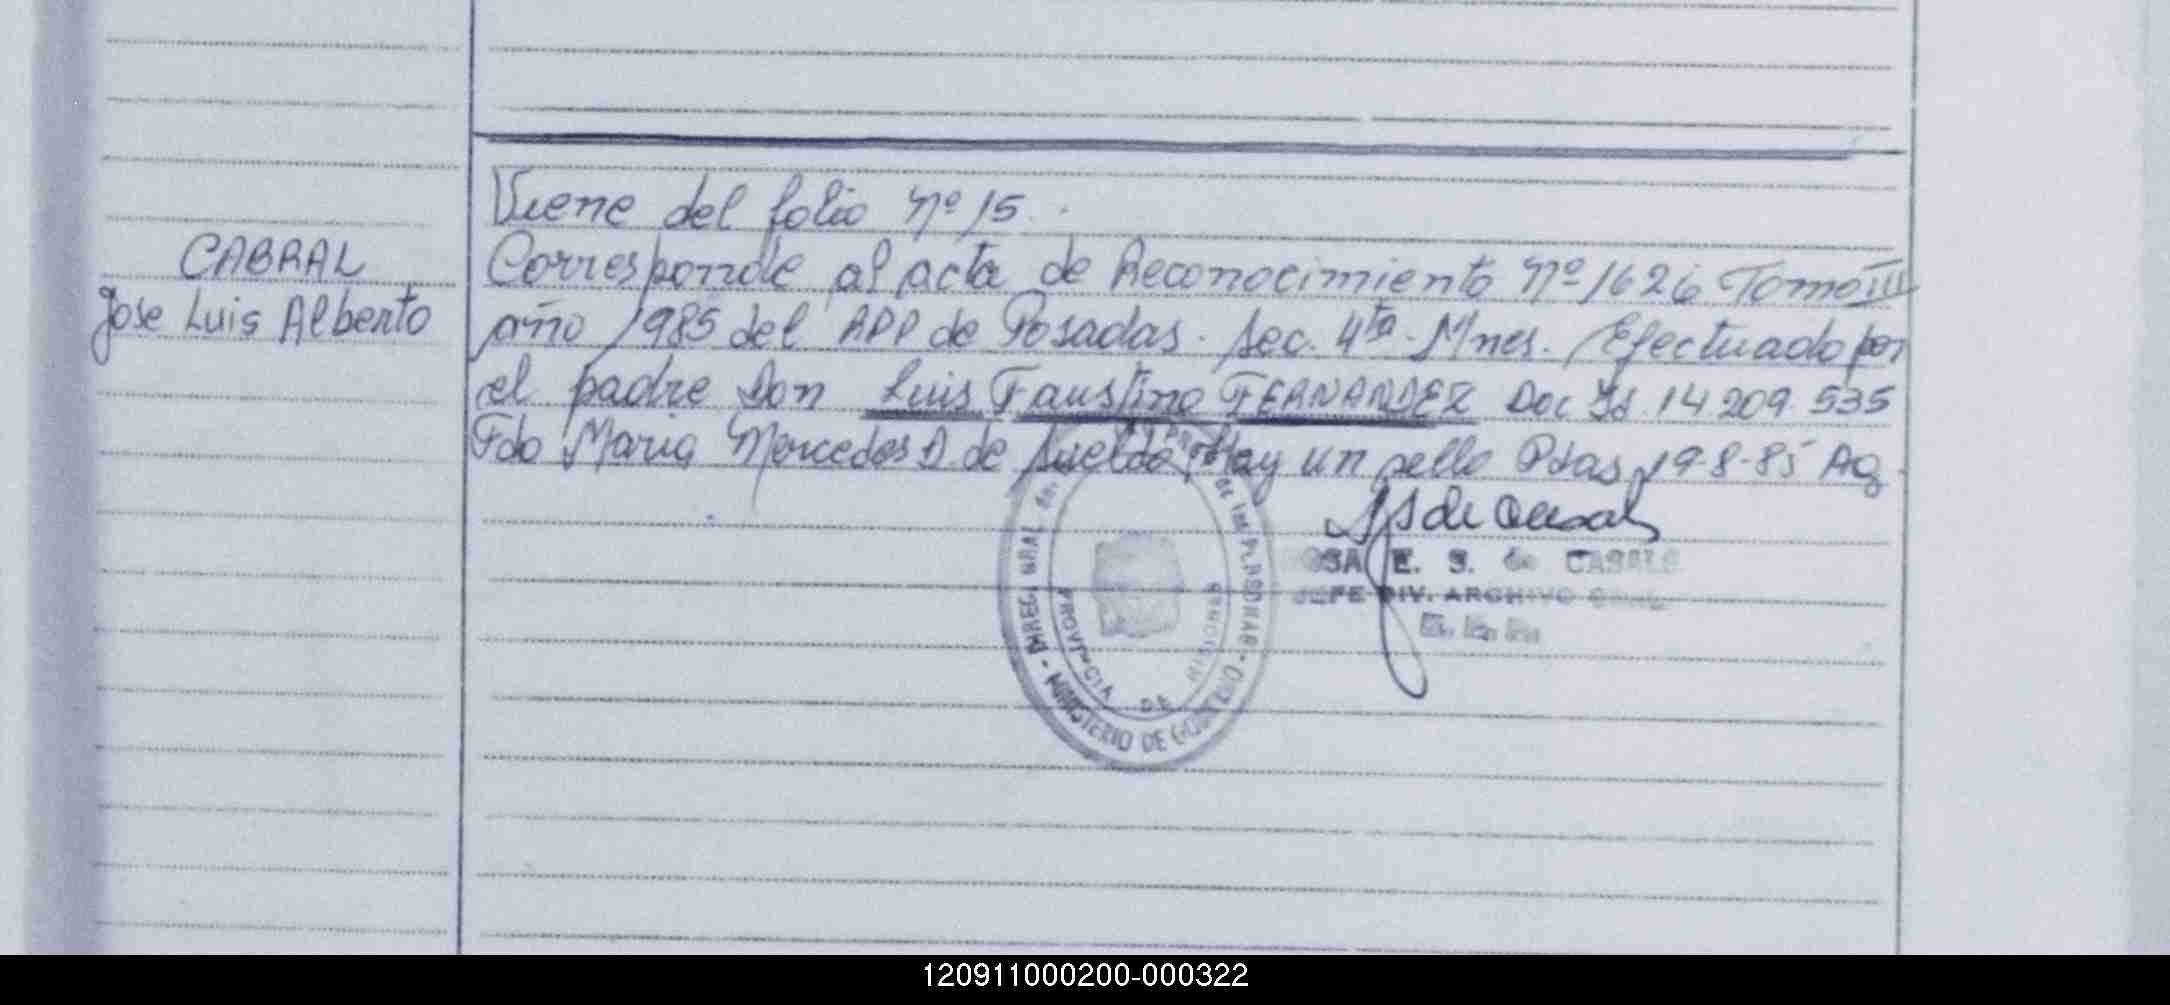 Viene del folio Nº 15.
CABRAL
Jose Luis Alberto
Corresponde al acta de Reconocimiento Nº 1626 Tomo III
año 1985 del RPP de Posadas. Sec. 4ta. Mnes. Efectuado por
el padre Don Luis Faustino FERNANDEZ Doc Id. 14 209. 535
Fdo Maria Mercedes A de Sueldo Hay un sello Pdas, 19-8-85 Ag
E. S. de CASALS
JEFE DIV. ARCHIVO GRAL
PROVINCIA DE MISIONES
MINISTERIO DE GOBIERNO
120911000200-000322